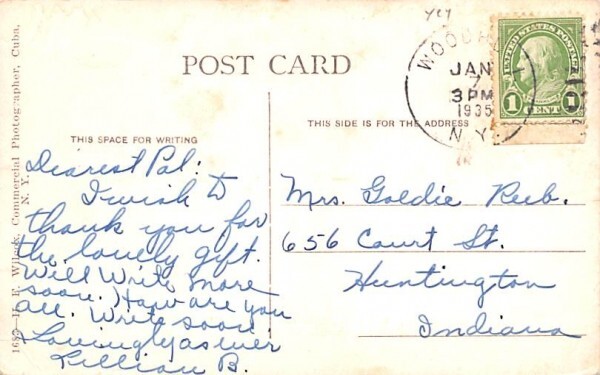 POST CARD
WOODHULL
JAN
7
3 PM
1935
N.Y.
UNITED STATES POSTAGE
1 CENT 1
THIS SPACE FOR WRITING
THIS SIDE IS FOR THE ADDRESS
Dearest Pal:
I wish to
thank you for
the lovely gift.
Will Write more
soon. How are you
all. Write soon
Lovingly as ever
Lillian B.
Mrs. Goldie Reeb.
656 Court St.
Huntington
Indiana
Commercial Photographer, Cuba,
N. Y.